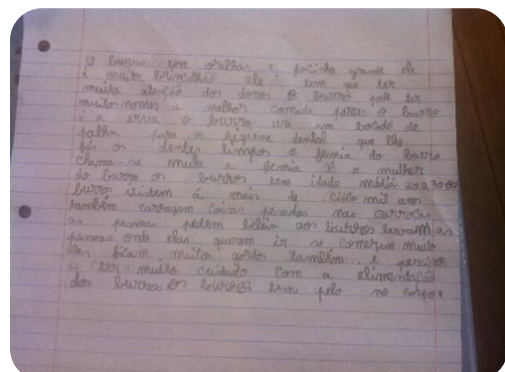 O burro tem orelhas e focinho grande ele
é muito brincalhão ele tem que ter
muita atenção dos donos o burro pode ter
muitos nomes a melhor comida para o burro
é a erva o burro usa um bocado de
palha para a higiene dental que lhe
faz os dentes limpos a femia do burro
chama-se mula a femia é a mulher
do burro os burros tem idade média 20a3000
burro existem á mais de cinco mil anos
também carragam coisas pesadas nas carroças
as pessoas pedem boleia aos burros levam as
pessoas onde elas querem ir se comerem muito
eles ficam muito gordos também é perciso
ter muito cuidado com a alimentação
dos burros os burros tem pelo no corpo.